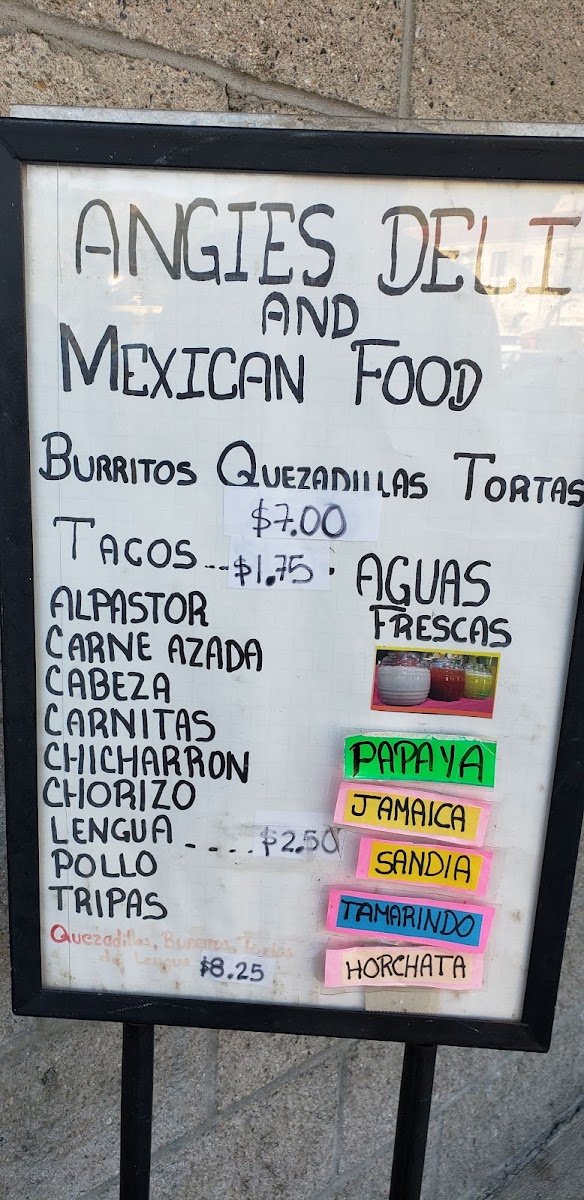 ANGIES DELI
AND
MEXICAN FOOD
BURRITOS QUEZADILLAS TORTAS
$7.00
TACOS...$1.75.
ALPASTOR
CARNE AZADA
CABEZA
CARNITAS
CHICHARRON
CHORIZO
LENGUA ....$2.50
POLLO
TRIPAS
Quezadillas, Burritos, Tortas
de Lengua $8.25
AGUAS
FRESCAS
PAPAYA
JAMAICA
SANDIA
TAMARINDO
HORCHATA